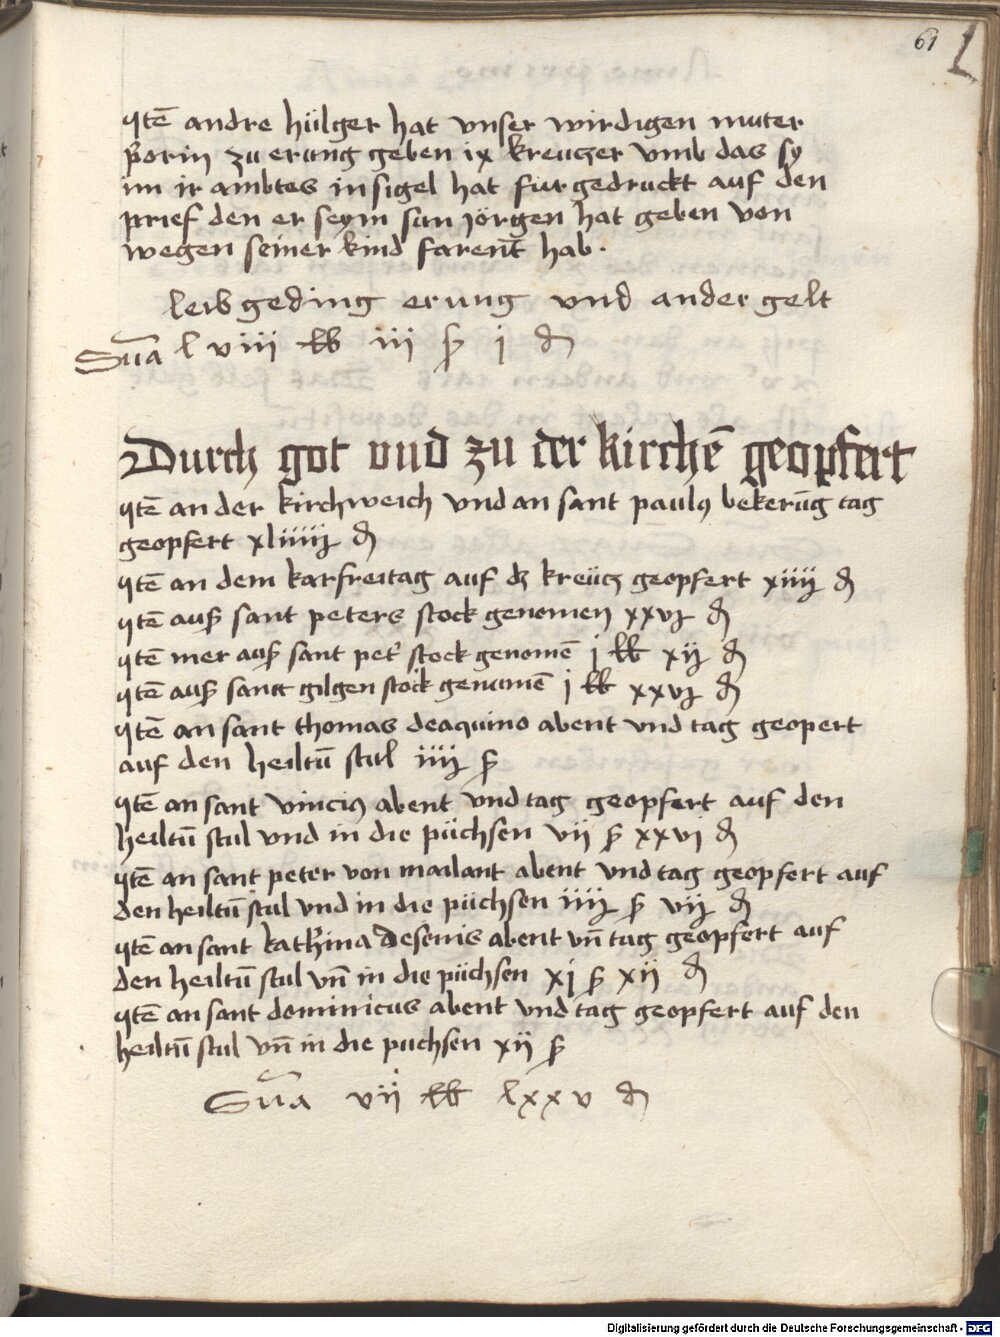 61
Itē andre hülger hat vnser wirdigen muter
p̄orin zu erung geben ix kreuczer vmb das sy
im ir ambtes insigel hat fur gedruckt auf den
prief den er seym sun Jörgen hat geben von
wegen seiner kind farent̄ hab.
leibgeding erung vnd ander gelt
Sūa l viii lb iii ß i ₰
Durch got vnd zu der kirchē geopfert
Itē an der kirchweich vnd an sant paulꝰ bekerūg tag
geopfert xliiiij ₰
Itē an dem karfreitag auf dz kreücz geopfert xiiij ₰
Itē auß sant peters stock genomen xxvj ₰
Itē mer auß sant pet̓ stock genomē j lb xij ₰
Itē auß sant gilgen stock genumē j lb xxvj ₰
Itē an sant thomas deaquino abent vnd tag geopert
auf den heiltū stul iiij ß
Itē an sant vinciꝰ abent vnd tag geopfert auf den
heiltū stul vnd in die püchsen vij ß xxvj ₰
Itē an sant peter von mailant abent vnd tag geopfert auf
den heiltū stul vnd in die püchsen iiij ß vij ₰
Itē an sant kath̓ina desenis abent vn̄ tag geopfert auf
den heiltū stul vn̄ in die püchsen xj ß xij ₰
Itē an sant dominicus abent vnd tag geopfert auf den
heiltū stul vn̄ in die puchsen xij ß
Sūa vii lb lxxv ₰
Digitalisierung gefördert durch die Deutsche Forschungsgemeinschaft - DFG